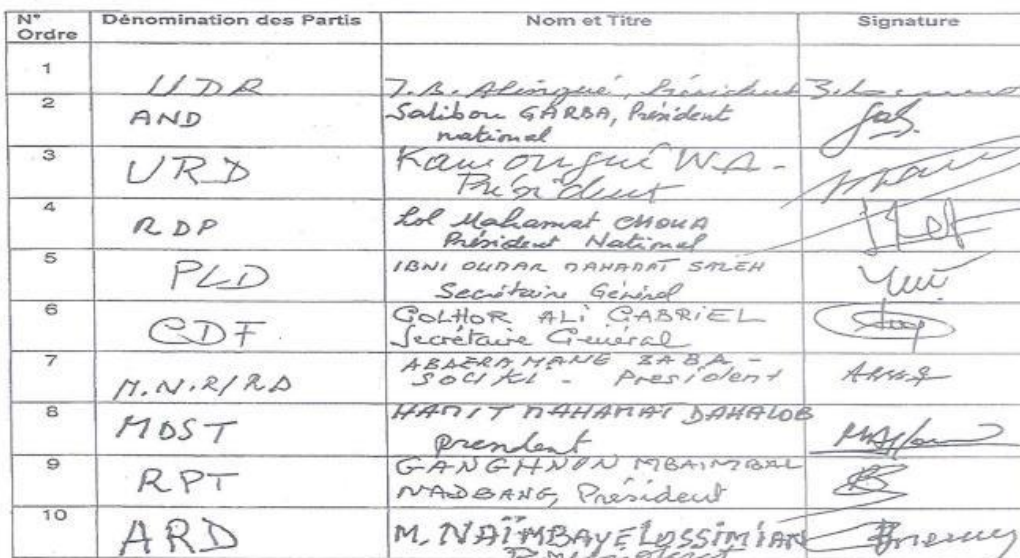 N° Ordre Dénomination des Partis Nom et Titre Signature
1 UDR J.B. Alingué, Président
2 AND Salibou GARBA, Président
national
3 URD Kamougué W.A -
Président
4 RDP Lol Mahamat CHOUA
Président National
5 PLD IBNI OUMAR MAHAMAT SALEH
Secrétaire Général
6 CDF GOLHOR ALI GABRIEL
Secrétaire Général
7 M.N.R/RD
- Président
8 MDST HAMIT MAHAMAT DAHALOB
president
9 RPT GANGHNON MBAIMBAL
NADBANG, Président
10 ARD M. NAÏMBAYE LOSSIMIAN
Président